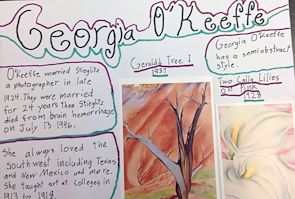 Georgia O'Keeffe
O'Keeffe married Stieglitz
a photographer in late
1924. They were married
for 24 years then Stieglitz
died from brain hemorrhage
on July 13 1946.
She always loved the
southwest including Texas
and New Mexico and more.
She taught art at Colleges in
1913 to 1918
Gerald's Tree I
1937
Georgia O'Keeffe
has a semiabstract
style.
Two Calla Lilies
On Pink
1928